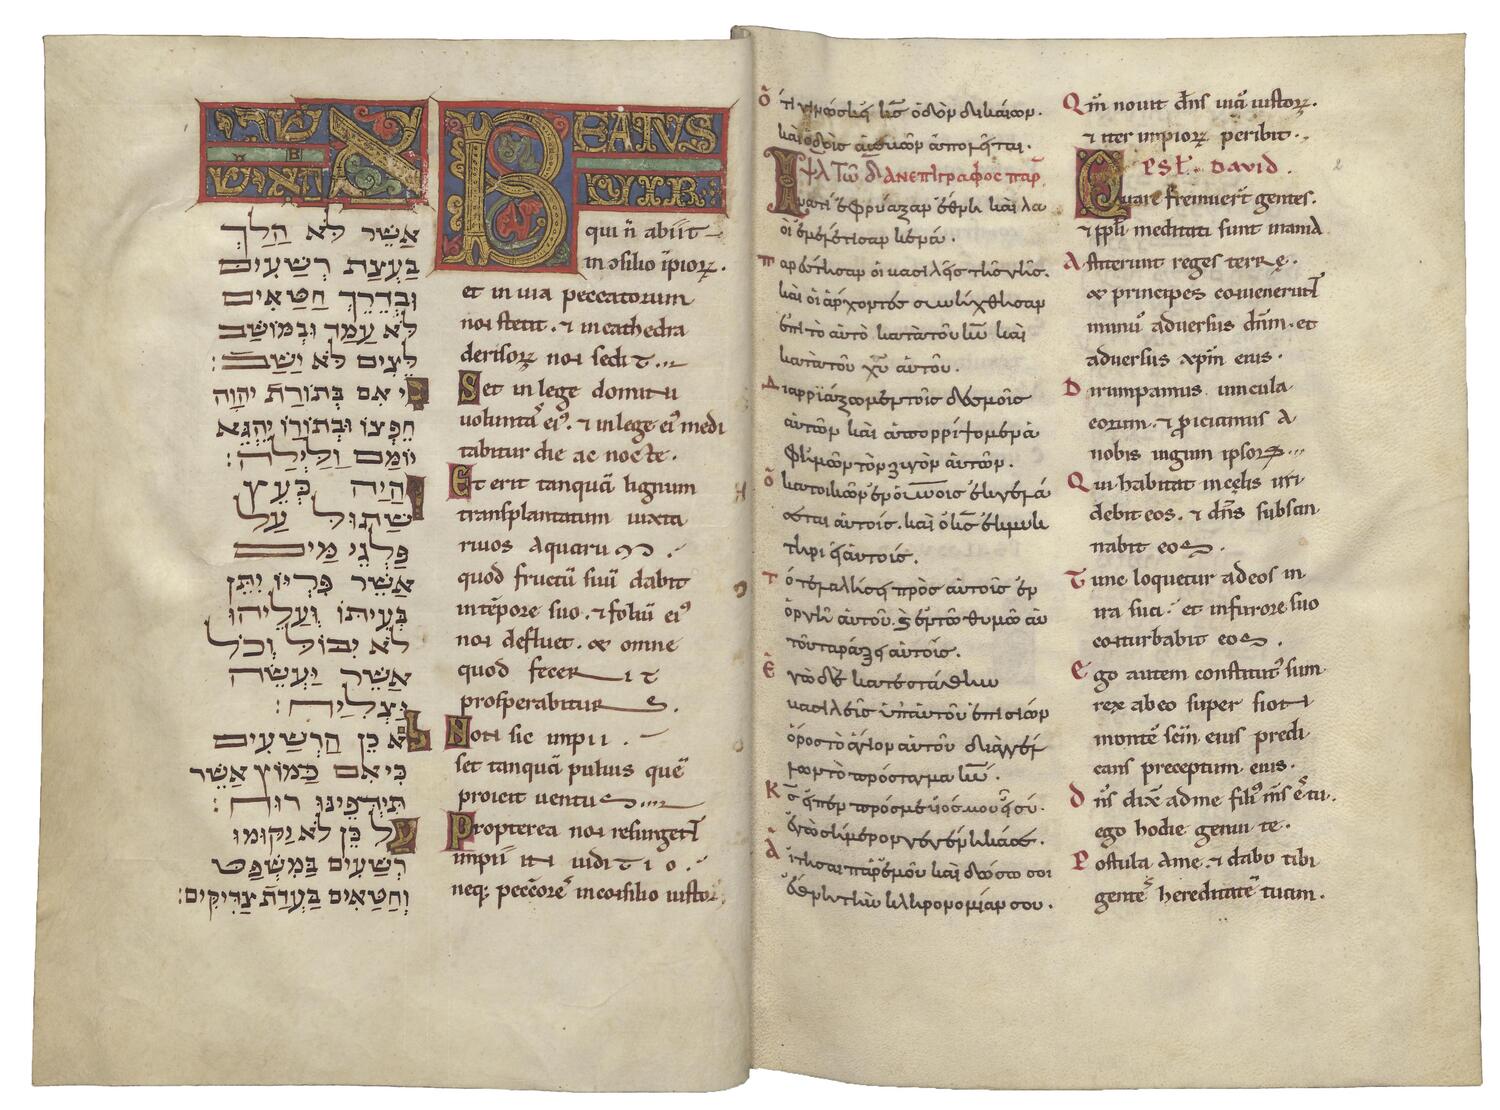 אשרי
האיש
אֲשֶׁר לֹא הָלַךְ
בַּעֲצַת רְשָׁעִים
וּבְדֶרֶךְ חַטָּאִים
לֹא עָמַד וּבְמוֹשַׁב
לֵצִים לֹא יָשָׁב:
כִּי אִם בְּתוֹרַת יְהוָה
חֶפְצוֹ וּבְתוֹרָתוֹ יֶהְגֶּה
יוֹמָם וָלָיְלָה:
וְהָיָה כְּעֵץ
שָׁתוּל עַל
פַּלְגֵי מָיִם
אֲשֶׁר פִּרְיוֹ יִתֵּן
בְּעִיתּוֹ וְעָלֵיהוּ
לֹא יִבּוֹל וְכֹל
אֲשֶׁר יַעֲשֶׂה
יַצְלִיחַ:
לֹא כֵן הָרְשָׁעִים
כִּי אִם כַּמּוֹץ אֲשֶׁר
תִּידְפֵינוּ רוּחַ:
עַל כֵּן לֹא יָקוּמוּ
רְשָׁעִים בַּמִּשְׁפָּט
וְחַטָּאִים בַּעֲדַת צַדִּיקִים:
BEATVS
VIR
qui n̄ abiit
in ɔsilio īpioꝝ.
et in uia peccatorum
non stetit. & in cathedra
derisoꝝ non sedit...
Set in lege domini
uolunta̅ ei9. & in lege ei9 medi
tabitur die ac nocte.
Et erit tanquā lignum
transplantatum iuxta
riuos aquarum.
quod fructū suū dabit
in tēpore suo. & foliū ei9
non defluet. & omne
quod fecerit
prosperabitur.
Non sic impii.
set tanquā puluis quē
proicit uentus....
Propterea non resurgent
impii in iuditio.
neq; peccōres in consilio iustoꝝ
Ὅτι γινώσκει κ̅ς̅ ὁδὸν δικαίων.
καὶ ὁδὸς ἀσεβῶν ἀπολεῖται.
ἀνεπίγραφος παρ
ἐφρύαξαν ἔθνη καὶ λα
οὶ ἐμελέτησαν κενά.
Παρέστησαν οἱ βασιλεῖς τῆς γῆς.
καὶ οἱ ἄρχοντες συνήχθησαν
ἐπὶ τὸ αὐτὸ κατὰ τοῦ κ̅υ̅ καὶ
κατὰ τοῦ χ̅υ̅ αὐτοῦ.
Διαρρήξωμεν τοὺς δεσμοὺς
αὐτῶν καὶ ἀπορρίψωμεν ἀ
φ᾽ ἡμῶν τὸν ζυγὸν αὐτῶν.
Ὁ κατοικῶν ἐν οὐνοῖς ἐκγελά
σεται αὐτούς. καὶ ὁ κ̅ς̅ ἐκμυκ
τηριεῖ αὐτούς.
Τότε λαλήσει πρὸς αὐτοὺς ἐν
ὀργῇ αὐτοῦ. καὶ ἐν τῷ θυμῷ αὐ
τοῦ ταράξει αὐτούς.
Ἐγὼ δὲ κατεστάθην
βασιλεὺς ὑπ᾽ αὐτοῦ ἐπὶ σιὼν
ὄρος τὸ ἅγιον αὐτοῦ διαγγέλ
λων τὸ πρόσταγμα κ̅υ̅.
Κ̅ς̅ εἶπεν πρός με υἱός μου εἶ σύ.
ἐγὼ σήμερον γεγέννηκά σε.
Αἴτησαι παρ᾽ ἐμοῦ καὶ δώσω σοι
ἔθνη τὴν κληρονομίαν σου.
Qm̄ nouit dn̄s uiā iustoꝝ.
& iter impioꝝ peribit.
PSL. DAVID.
2
Quare fremuer̄t gentes.
& ppl̄i meditati sunt inania
Astiterunt reges terrę.
& principes conuenerunt
inunū aduersus dn̄m. et
aduersus xpīn eius.
Dirumpamus uincula
eorum. & proiciamus a
nobis iugum ipsoꝝ...
Qui habitat in cęlis irri
debit eos. & dn̄s subsan
nabit eos.
Tunc loquetur ad eos in
ira sua. et in furore suo
conturbabit eos.
Ego autem constitut9 sum
rex ab eo super sion
montē sc̄m eius predi
cans preceptum eius.
Dn̄s dixit ad me fili9 m̄s es tu.
ego hodie genui te.
Postula a me. & dabo tibi
gentes hereditatē tuam.